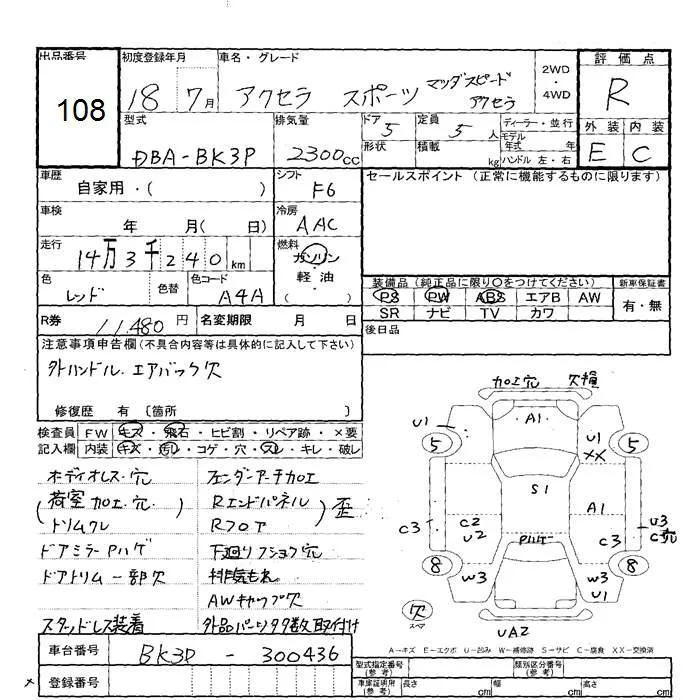 出品番号 初度登録年月 車名・グレード 2WD・4WD 評価点
108 18 7月 アクセラ スポーツ マツダスピードアクセラ R
型式 排気量 ドア 5 定員 5人 ディーラー・並行 外装 内装
DBA-BK3P 2300cc 形状 積載 kg モデル年式 年 ハンドル 左・右 E C
車歴 自家用・( ) シフト F6 セールスポイント (正常に機能するものに限ります)
車検 年 月( 日) 冷房 AAC
走行 14万3千240km 燃料 ガソリン・軽油・( )
色 レッド 色替 色コード A4A 装備品 (純正品に限り○をつけてください) 新車保証書
PS PW ABS エアB AW 有・無
SR ナビ TV カワ
R券 11,480円 名変期限 月 日 後日品
注意事項申告欄(不具合内容等は具体的に記入して下さい)
外ハンドル、エアバック欠
修復歴 有 〔箇所 〕
検査員 FW キズ・飛石・ヒビ割・リペア跡・×要
記入欄 内装 キズ・汚レ・コゲ・穴・スレ・キレ・破レ
オーディオレス・穴 フェンダーアーチ加工
(荷室 加工・穴) Rエンドパネル
トリムクレ Rフロア 歪
ドアミラーPハゲ 下廻りフショク穴
ドアトリム一部欠 排気もれ
AWキャップ欠
スタッドレス装着 外品パーツ多数取付け
加工穴 欠損
U1 A1 U1 XX
5 5
S1
A1
C3 C2 U2 C3 U3
Pハゲ
8 8
W3 W3 U1
欠 スペア UA2
A-キズ E-エクボ U-凹み W-補修跡 S-サビ C-腐食 XX-交換済
車台番号 BK3P-300436 型式指定番号(参考) 類別区分番号(参考)
登録番号 車庫証明用(参考) 長さ cm 幅 cm 高さ cm